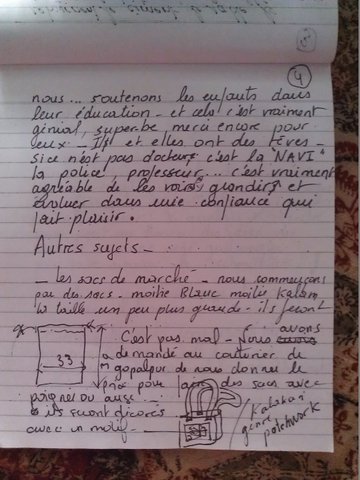 ④
nous... soutenons les enfants dans
leur éducation - et cela c'est vraiment
génial, superbe merci encore pour
eux - Ils et elles ont des rêves -
si ce n'est pas docteur c'est la "NAVI"
la police, professeur... c'est vraiment
agréable de les voirs grandirs et
évoluer dans une confiance qui
fait plaisir.
Autres sujets -
- Les sacs de marché - nous commençons
par des sacs - moitié Blanc moitié Kalam
la taille un peu plus grande - ils feront
33
C'est pas mal - Nous avons
demandé au couturier de
gopalpur de nous donner le
prix pour faire des sacs avec
poignet ou anse -
ils seront décorés
avec un motif -
genre
patchwork